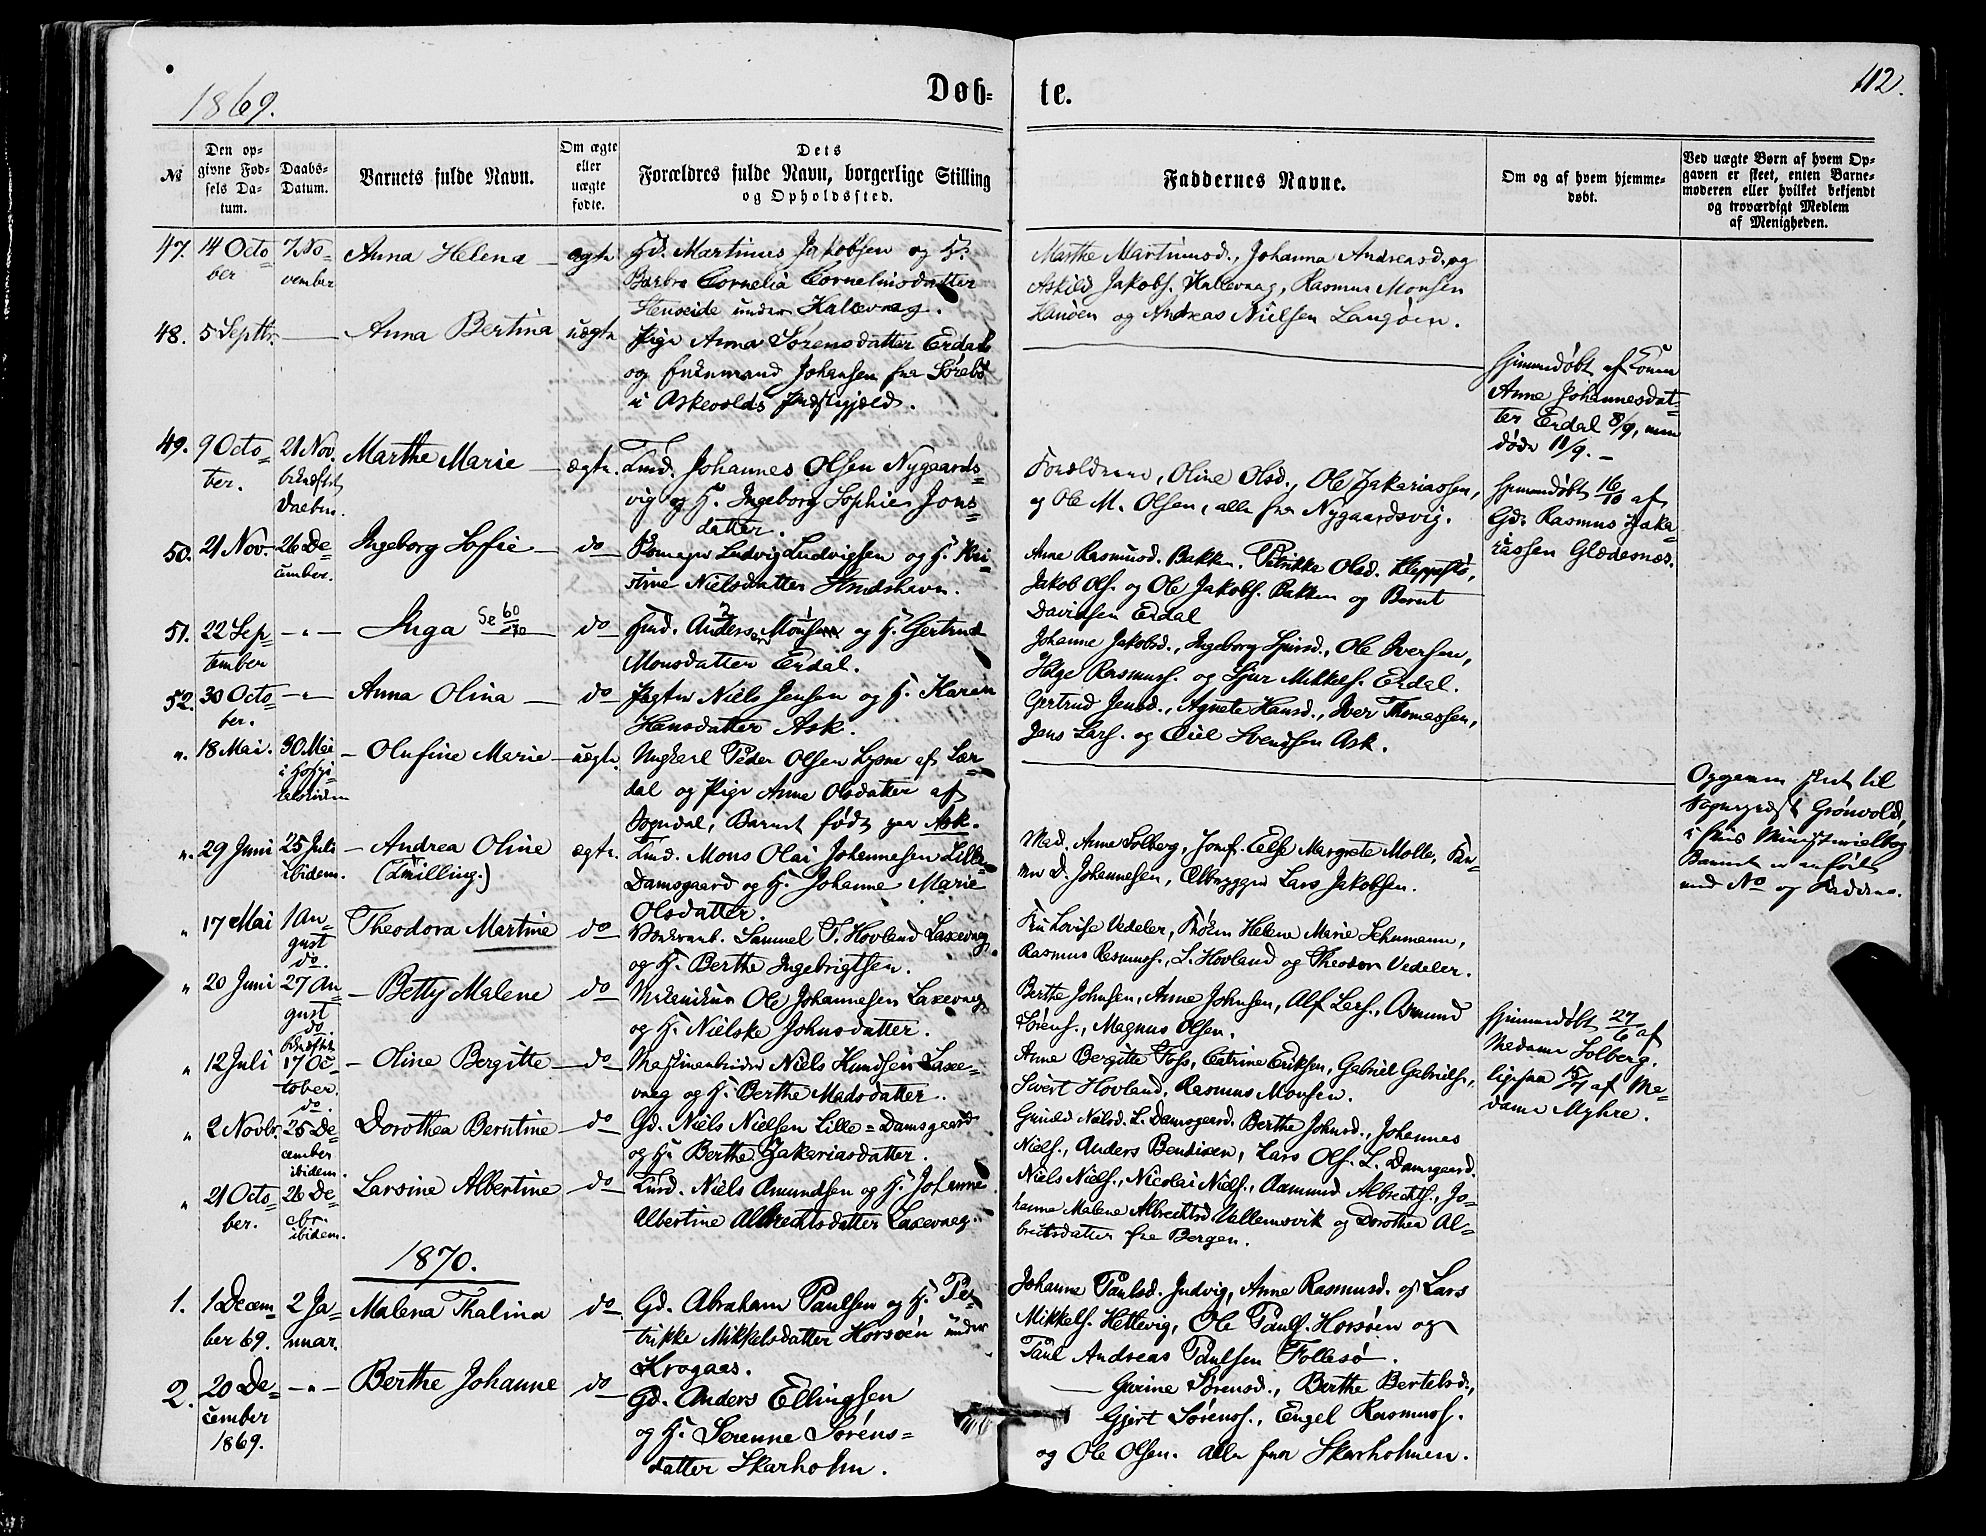 1869.
Døb-
te.
112.
№
Den op-
givne Fød-
sels Da-
tum.
Daabs-
Datum.
Barnets fulde Navn.
Om ægte
eller
uægte
fødte.
Dets
Forældres fulde Navn, borgerlige Stilling
og Opholdssted.
Faddernes Navne.
Om og af hvem hjemme-
døbt.
Ved uægte Børn af hvem Op-
gaven er skeet, enten Barne-
moderen eller hvilket bekjendt
og troværdigt Medlem
af Menigheden.
47. 14 Octo-
ber
7 No-
vember
Anna Helena
ægte
Gd. Martinus Jakobsen og H.
Barbro Cornelia Corneliusdatter
under Kallevaag.
Marthe Martinusd., Johanna Andreasd. og
Askild Jakobs. Kallevaag, Rasmus Monsen
Hanøen og Andreas Nielsen Langøen.
48. 5 Septbr.
Anna Bertina
uægte
Pige Anna Sørensdatter Erdal
og Johansen fra
i Askevolds Præstegjeld.
Hjemmedøbt af
Anne Johannesdat-
ter Erdal 8/9, men
døde 11/9.
49. 9 Octo-
ber.
21 Nov.
bekræftet
Daaben.
Marthe Marie
ægte.
Johannes Olsen Nygaards-
vig og H. Ingeborg Sophie Jons-
datter.
Forældrene, Oline Olsd., Ole Zakariassen,
og Ole M. Olsen, alle fra Nygaardsvig.
Hjemmedøbt 16/10 af
Gd. Rasmus Zaka-
riassen Glædesnes.
50. 21 Nov.
26 De-
cember.
Ingeborg Sofie
do
Ludvig Ludvigsen og H. Kri-
stine Nielsdatter
Anne Rasmusd. Bakken, Petrikke Olsd. Kleppestø,
Jakob Ols. og Ole Jakobs. Bakken og Bernt
Davidsen Erdal
51. 22 Sep-
tember
Inga Se 60/70
do
Hmd. Anders og H. Gertrud
Monsdatter Erdal.
Johanne Jakobsd., Ingeborg Sjursd., Ole Iversen,
Helge Rasmuss. og Sjur Mikkels. Erdal.
52. 30 Octo-
ber.
Anna Olina
do
Niels Jensen og H. Karen
Hansdatter Ask.
Gertrud Jensd., Agnete Hansd., Iver Thomassen,
Jens Lars. og Svendsen Ask.
" 18 Mai.
30 Mai
i Hospi-
talskirken
Olufine Marie
uægte.
Ungkarl Peder Olsen Lysne af Lær-
dal og Pige Anne Olsdatter af
Sogndal, Barnet født paa Ask.
Opgaven skeet til
Sognepræst Grønvold,
i hvis Ministerialbog
Barnet er anført
med No og Faddere.
" 29 Juni
25 Juli
ibidem.
Andrea Oline
(Tvilling.)
ægte.
Mons Olai Johannesen Lille
Damsgaard og H. Johanne Marie
Olsdatter.
Mad. Anne Solberg, Jomf. Else Margrete Molle,
D. Johannesen, Ølbrygger Lars Jakobsen.
" 17 Mai
1 Au-
gust
do.
Theodora Martine
do
Samuel T. Hovland Laxevaag
og H. Berthe Ingebrigtsen.
Fru Lovise Vedeler, Frøken Helene Marie Schumann,
Rasmus Rasmuss., S. Hovland og Theodor Vedeler.
" 20 Juni
27 Au-
gust
do.
bekræftet
Betty Malene
do
Ole Johannesen Laxevaag
og H. Nielske Johnsdatter.
Berthe Johnsen, Anne Johnsen, Alf Lars., Asmund
Sørens., Magnus Olsen.
Hjemmedøbt 27/6 af
Madame Solberg.
" 12 Juli
17 Oc-
tober.
do.
Oline Bergitte
do
Maskinarbeider Niels Knudsen Laxe-
vaag og H. Berthe Madsdatter.
Anne Bergitte Foss, Catrine Eriksen, Gabriel Gabriels.,
Sivert Hovland, Rasmus Monsen.
ligesaa 15/7 af Ma-
dame Myhre.
" 2 Novbr.
25 De-
cember
ibidem.
Dorothea Berntine
do
Gd. Niels Nielsen Lille-Damsgaard
og H. Berthe Zakariasdatter.
Gunild Nielsd. L. Damsgaard, Berthe Johnsd., Johannes
Niels., Anders Bendixen, Lars Ols. L. Damsgaard.
" 21 Octo-
ber.
26 De-
cbr.
ibidem.
Larsine Albertine
do
Niels Amundsen og H. Johanne
Albertine Albrechtsdatter Laxevaag.
Niels Niels., Nicolai Niels., Aamund Albrechts., Jo-
hanne Malene Albrechtsd. og Dorothea Al-
brechtsdatter fra Bergen.
1870.
1. 1 Decem-
ber 69.
2 Ja-
nuar.
Malena Thalina
do
Gd. Abraham Paulsen og H. Pe-
trikke Mikkelsdatter Horsøen under
Krogaas.
Johanne Paulsd. Judvig, Anne Rasmusd. og Lars
Mikkels. Hetlevig, Ole Pauls. Horsøen og
Paul Andreas Paulsen Follesø.
2. 20 De-
cember
1869.
Berthe Johanne
do
Gd. Anders Ellingsen
og H. Serenne Sørens-
datter Skarholm.
Gurine Sørensd., Berthe Bertelsd.,
Gjert Sørens., Engel Rasmuss.
og Ole Olsen. Alle fra Skarholmen.